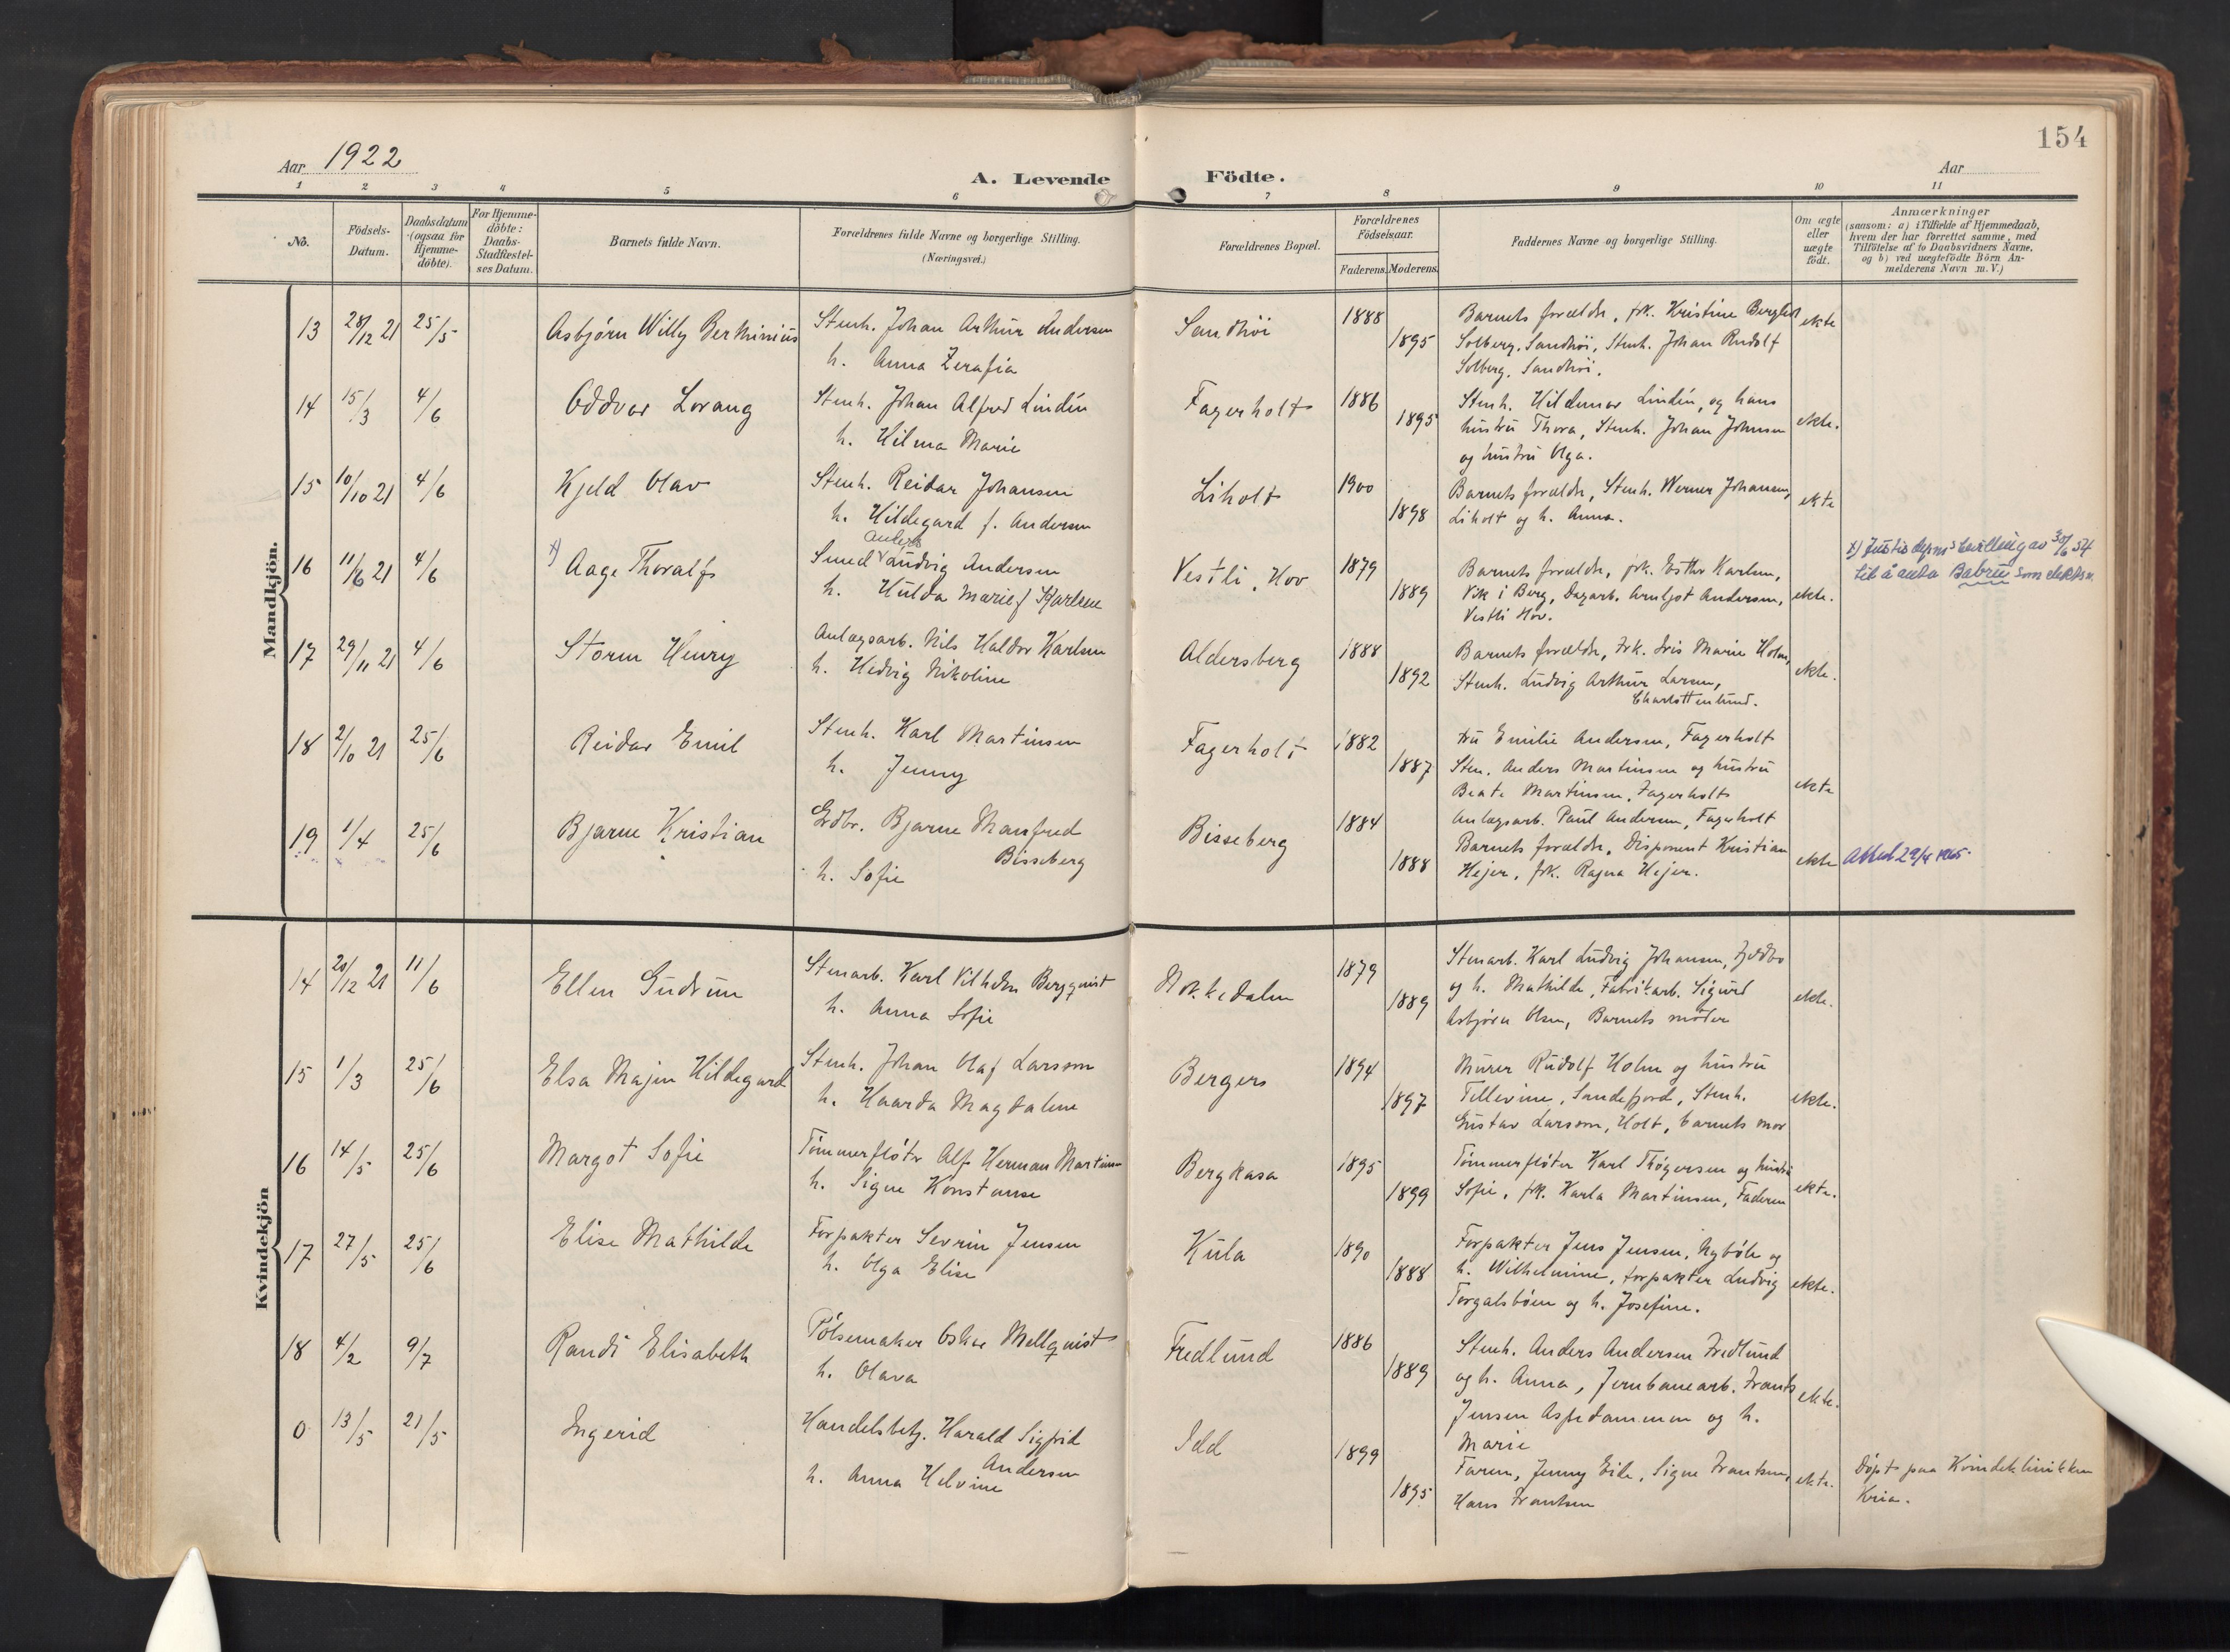 154
Aar 1922
A. Levende Födte.
Aar
1 2 3 4 5 6 7 8 9 10 11
No.
Födsels-
Datum.
Daabsdatum
(ogsaa for
Hjemme-
döbte).
For Hjemme-
döbte:
Daabs-
Stadfæstel-
ses Datum.
Barnets fulde Navn.
Forældrenes fulde Navne og borgerlige Stilling.
(Næringsvei.)
Forældrenes Bopæl.
Forældrenes
Födselsaar.
Faderens. Moderens.
Faddernes Navne og borgerlige Stilling.
Om ægte
eller
uægte
födt.
Anmærkninger
(saasom: a) i Tilfælde af Hjemmedaab,
hvem der har forrettet samme, med
Tilföielse af to Daabsvidners Navne,
og b) ved uægtefödte Börn An-
melderens Navn m. V.)
Mandkjön.
13 28/12 21 25/5 Asbjørn Willy Stenh. Johan Arthur Andersen Sandhøi 1888 Barnets forældre, frk. Kristine ekte
h. Anna Zerafia 1895 Solberg, Sandhøi, Stenh. Johan Rudolf
Solberg, Sandhøi.
14 15/3 4/6 Oddvar Lorang Stenh. Johan Alfred Lindén Fagerholt 1886 Stenh. Hildemar Lindén, og hans
h. Hilma Marie 1895 hustru Thora, Stenh. Johan Johnsen ekte.
og hustru Olga.
15 10/10 21 4/6 Kjeld Olav Stenh. Reidar Johansen Liholt 1900 Barnets forældre, Stenh. Werner Johansen,
h. Hildegard f. Andersen 1898 Liholt og h. Anna. ekte
16 11/6 21 4/6 x) Aage Thoralf Smed Anders Ludvig Andersen Vestli, Hov 1879 Barnets forældre, frk. Esther Karlsen, x) Justis depns bevilling av 30/6 54
h. Hulda Marie f Karlsen 1889 Vik i Berg, Dagarb. Arnljot Andersen, ekte. til å anta Babrü som slektsn.
Vestli Hov.
17 29/11 21 4/6 Storm Henry Anlægsarb. Nils Haldor Karlsen Aldersberg 1888 Barnets forældre, Frk. Iris Marie Holm,
h. Hedvig Nikoline 1892 Stenh. Ludvig Arthur Larsen, ekte.
Charlottenlund.
18 2/10 21 25/6 Reidar Emil Stenh. Karl Martinsen Fagerholt 1882 Fru Emilie Andersen, Fagerholt
h. Jenny 1887 Sten. Anders Martinsen og hustru
Beate Martinsen, Fagerholt ekte
Anlægsarb. Paul Andersen, Fagerholt
19 1/4 25/6 Bjarne Kristian Grdbr. Bjarne Manfred Bisseberg Bisseberg 1884 Barnets forældre, Disponent Kristian
h. Sofie 1888 Hejer, frk. Ragna Hejer. ekte Attest 29/4 1965.
Kvindekjön
14 20/12 21 11/6 Ellen Gudrun Stenarb. Karl Vilhelm Bergquist Nokkedalen 1879 Stenarb. Karl Ludvig Johansen, Fjeldbo
h. Anna Sofie 1889 og h. Mathilde, Fabrikarb. Sigurd ekte.
Asbjørn Olsen, Barnets moder
15 1/3 25/6 Elsa Majen Hildegard Stenh. Johan Olaf Larsson Bergers 1894 Murer Rudolf Holm og hustru
h. Haarda Magdalene 1897 Tillevine, Sandefjord, Stenh. ekte.
Gustav Larsson, Holt, barnets mor
16 14/5 25/6 Margot Sofie Tømmerfløter Alf Herman Martinsen Bergkasa 1895 Tømmerfløter Karl Thøgersen og hustru
h. Signe Konstanse 1899 Sofie, frk. Karla Martinsen, Faderen ekte.
17 27/5 25/6 Elise Mathilde Forpakter Sevrin Jensen Kula 1890 Forpakter Jens Jensen, Nybøle og
h. Olga Elise 1888 h. Wilhelmine, forpakter Ludvig ekte.
Torgalsbøen og h. Josefine.
18 4/2 9/7 Randi Elisabeth Pølsemaker Oskar Mellquist Fredlund 1886 Stenh. Anders Andersen Fredlund
h. Olava 1889 og h. Anna, Jernbanearb. Frants ekte.
Jensen Aspedammen og h.
Marie
0 13/5 21/5 Ingerid Handelsbetj. Harald Sigfrid Andersen Idd 1899 Faren, Jenny Eide, Signe Frantsen, ekte. Døpt paa Kvindeklinikken
h. Anna Helvine 1895 Hans Frantsen Kria.